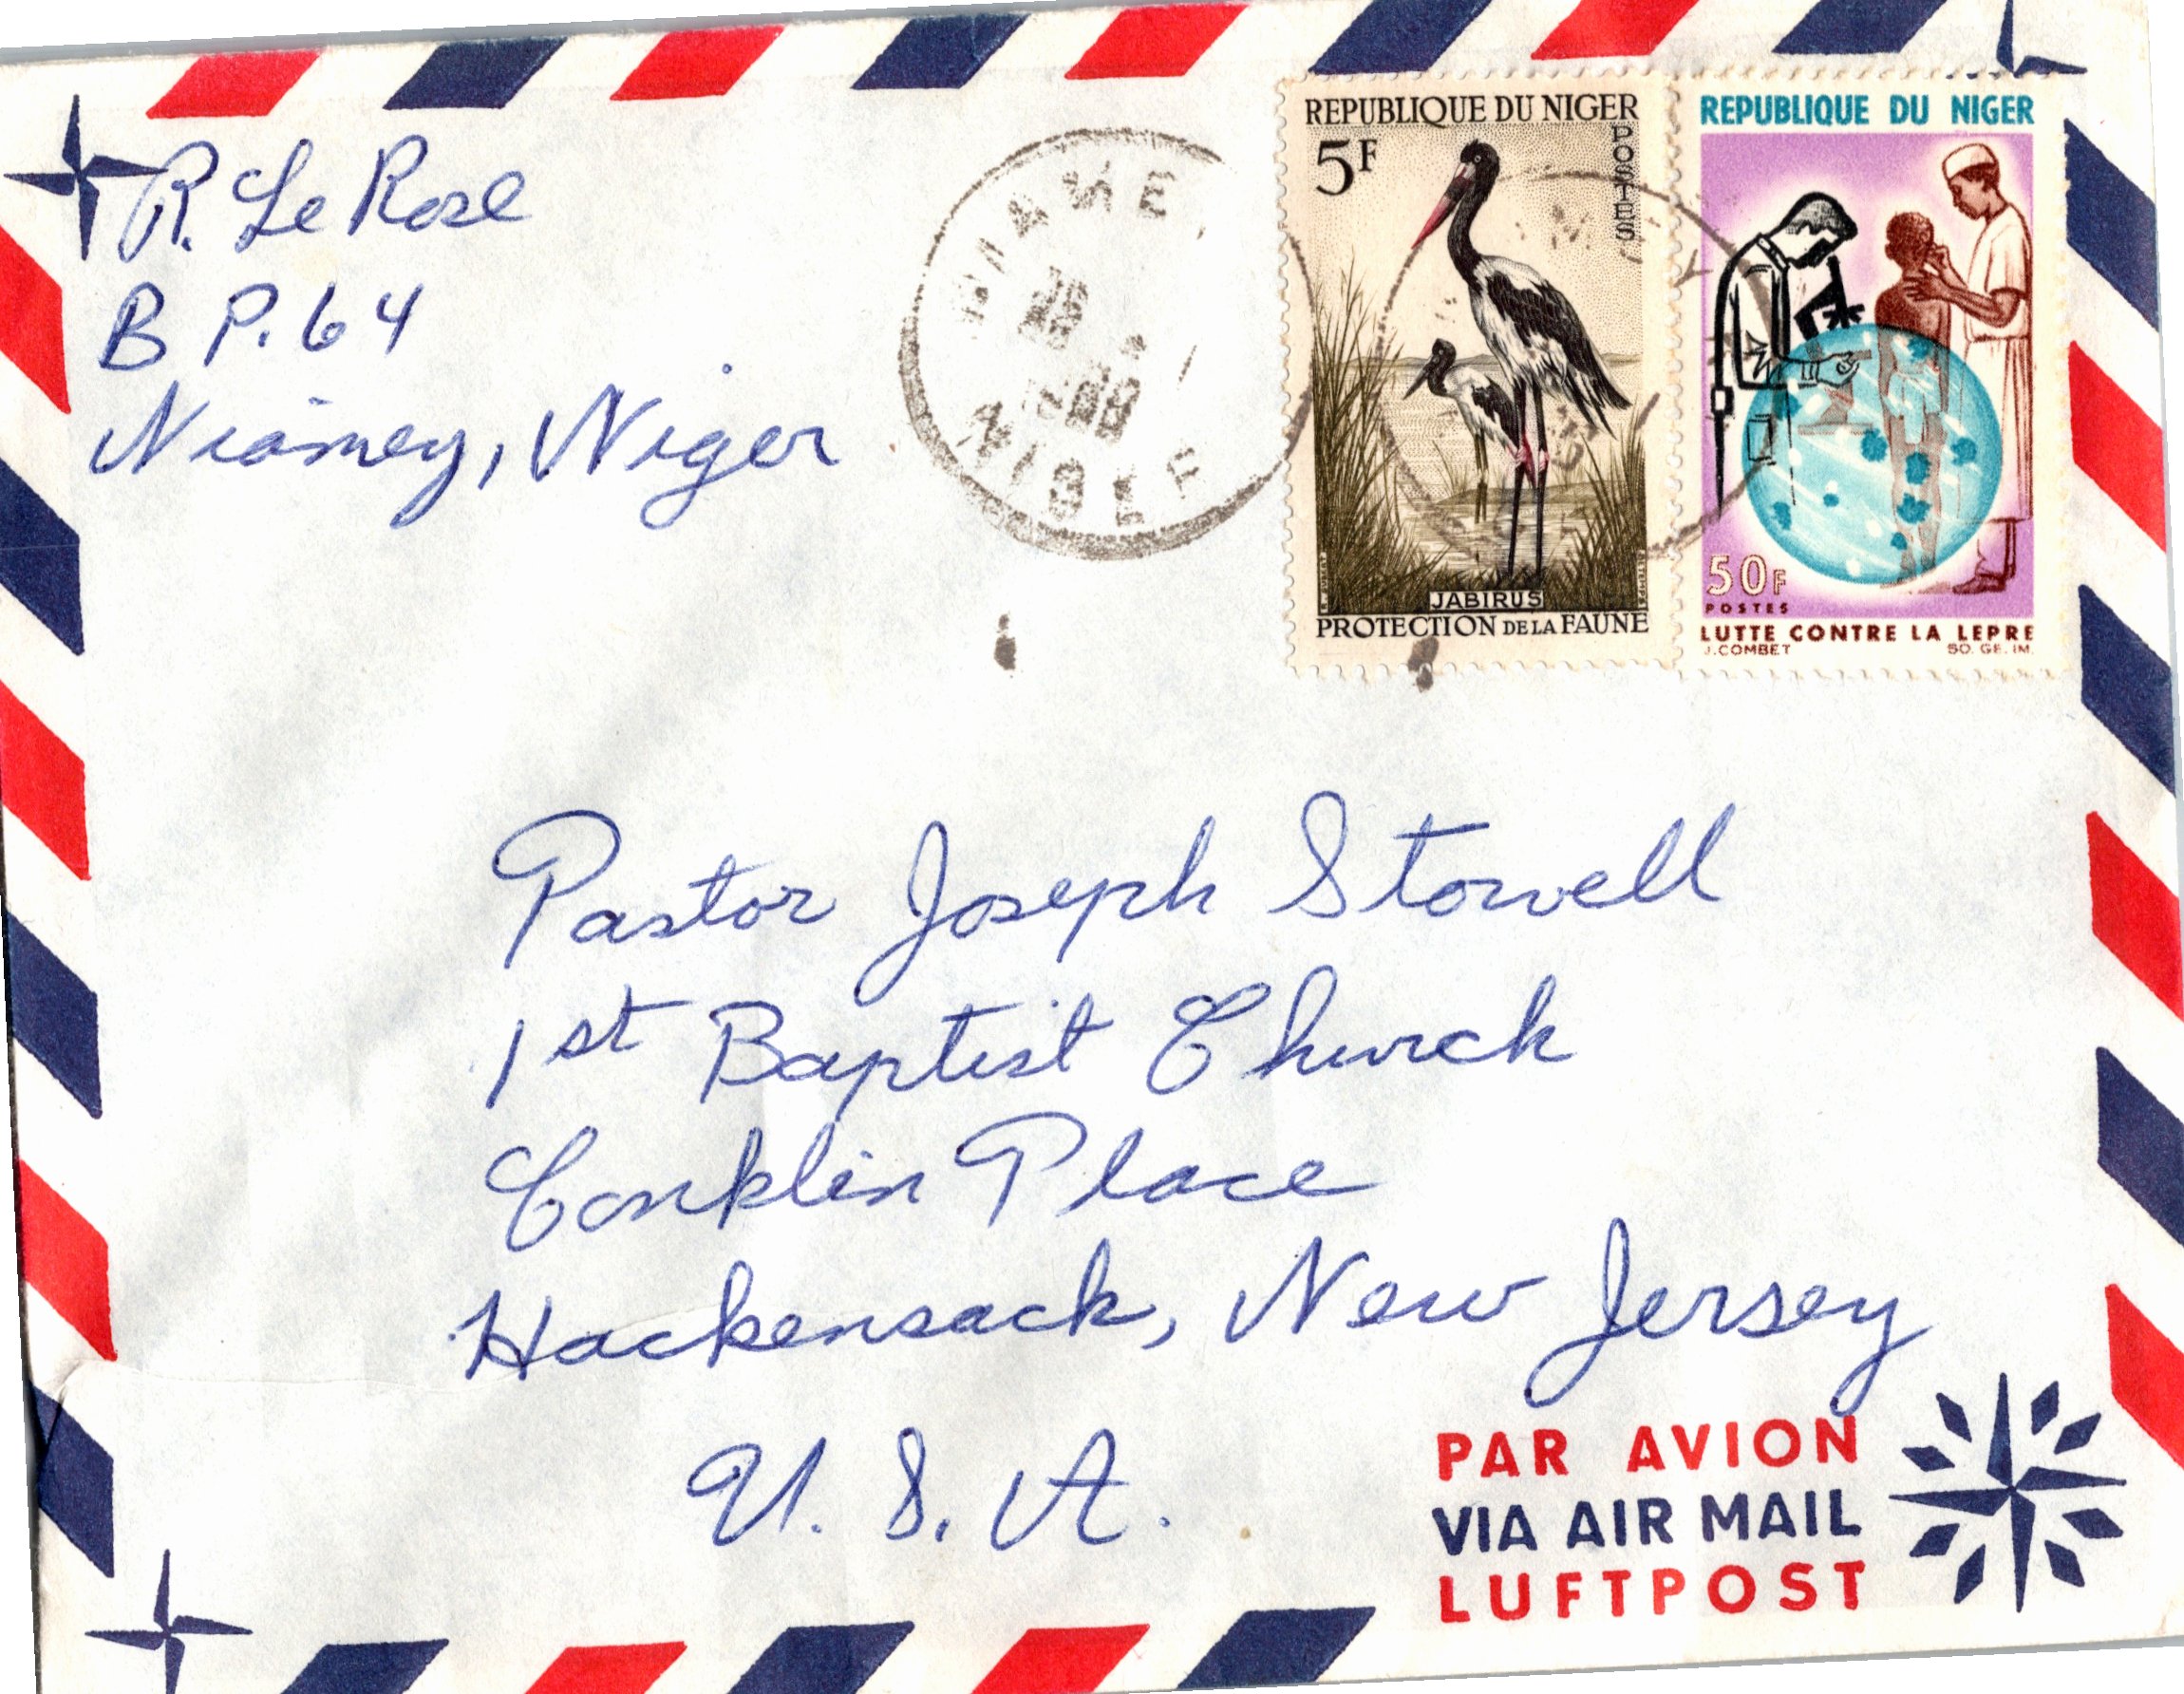 R. Le Rose
B P. 64
Niamey, Niger
NIGER
REPUBLIQUE DU NIGER
5F
POSTES
JABIRUS
PROTECTION DE LA FAUNE
REPUBLIQUE DU NIGER
50F
POSTES
LUTTE CONTRE LA LEPRE
J. COMBET SO. GE. IM.
Pastor Joseph Stowell
1st Baptist Church
Conklin Place
Hackensack, New Jersey
U. S. A.
PAR AVION
VIA AIR MAIL
LUFTPOST